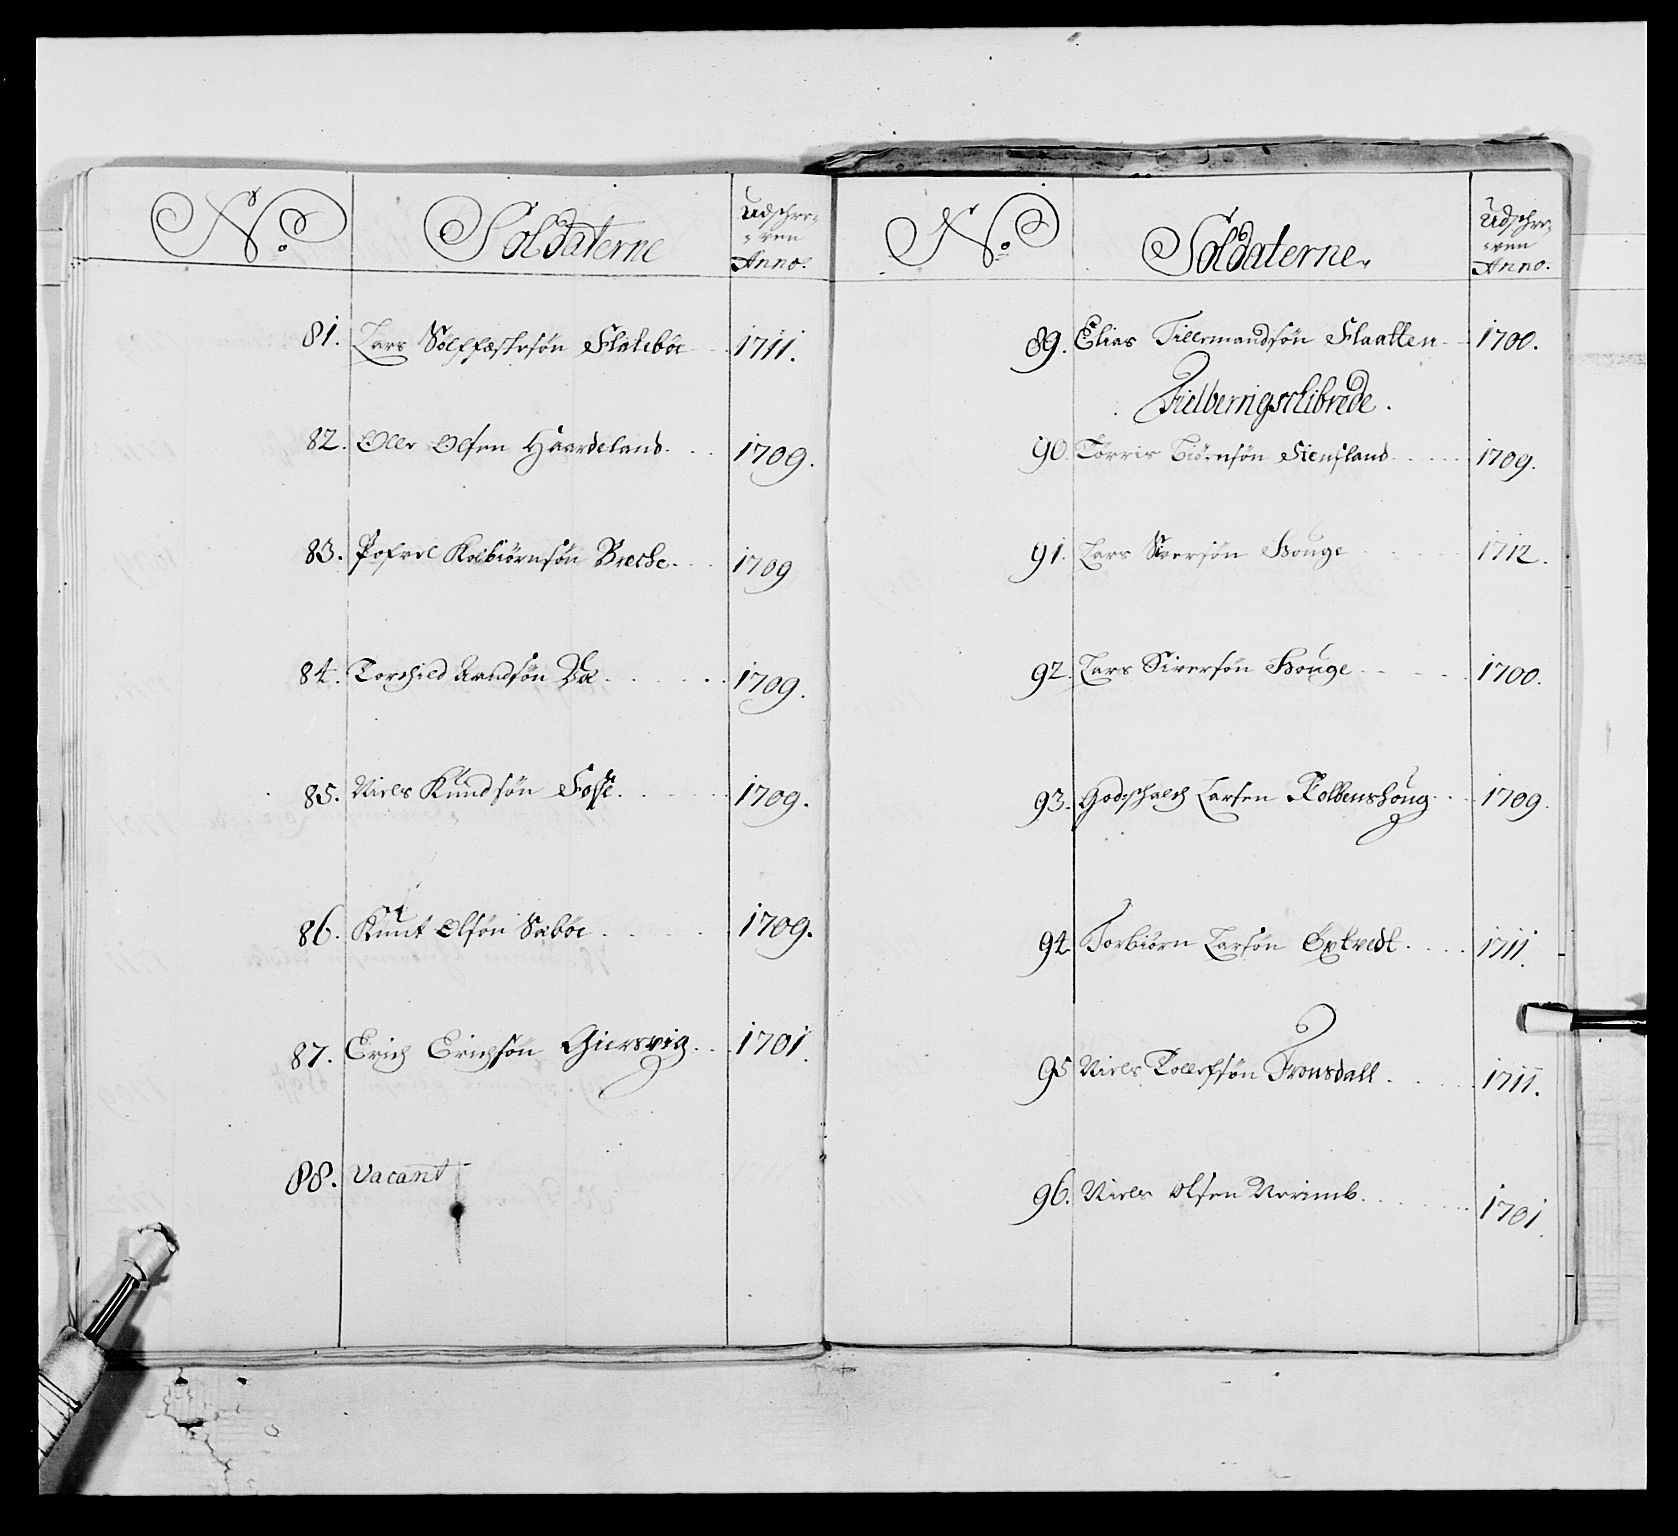 No. Soldaterne Udschre=
=ven
Anno.
81. Lars Sölffæstesön Flateböe 1711.
82. Olle Olsen Haardeland. 1709.
83. Pofvel Kolbiörnsön Breche. 1709
84. Torchild Amdsön Böe. 1709.
85. Niels Knudsön Fosse. 1709.
86. Knut Olsön Sæböe. 1709.
87. Erich Erichsön Giersvig. 1701.
88. Vacant
No. Soldaterne. Udschre=
=ven
Anno.
89. Elias Tillermandsön Flaatten 1700.
Fielbergschibrede.
90. Törris Biörnsön Fiensland 1709.
91. Lars Siversön Houge 1712.
92. Lars Siversön Houge 1700.
93. Godschalch Larsen Kolbenshoug 1709.
94. Torbiörn Larsön Öxtvedt. 1711.
95 Niels Tollefsön Tronsdall 1711.
96. Niels Olsen 1701.